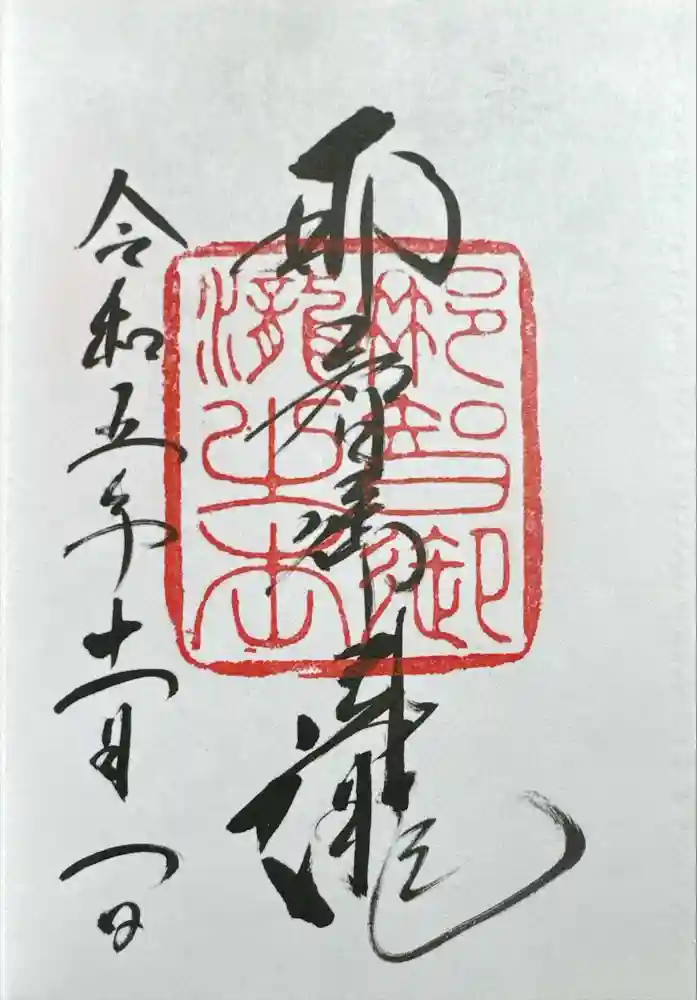 那智御瀧
令和五年十一月一日
那智御
瀧之本